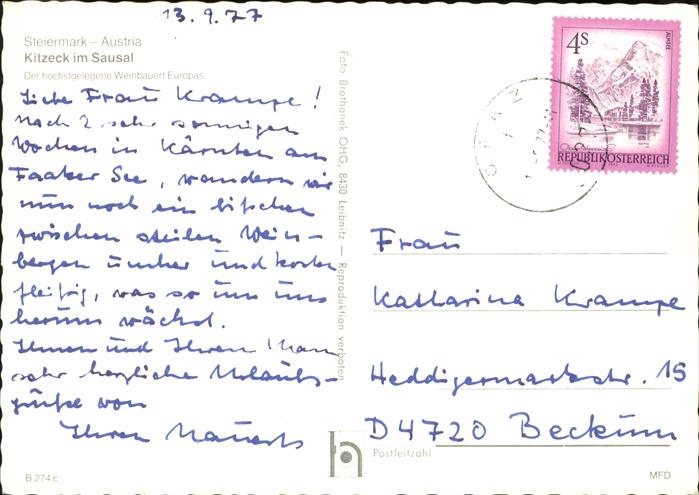 13.9.77
Steiermark – Austria
Kitzeck im Sausal
Der höchstgelegene Weinbauort Europas
Liebe Frau Krampe!
Nach 2 sehr sonnigen
Wochen in Kärnten am
Faaker See, wandern wir
nun noch ein bißchen
zwischen steilen Wein-
bergen umher und kosten
fleißig, was so um uns
herum wächst.
Ihnen und Ihrem Mann
sehr herzliche Urlaubs-
grüße von
Ihren
B 274 c
Foto Brothanek OHG, 8430 Leibnitz — Reproduktion verboten
4S
ALMSEE
REPUBLIK ÖSTERREICH
Frau
Katharina Krampe
Heddigermarkstr. 15
D 4720 Beckum
Postleitzahl
MFD